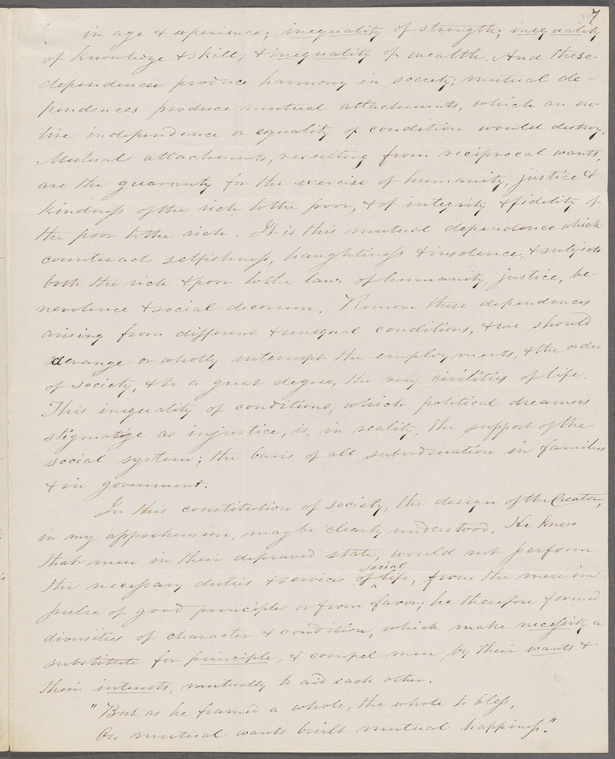 7
in age & experience; inequality of strength; inequality
of knowledge & skill; & inequality of wealth. And these
dependences produce harmony in society; mutual de-
pendences produce mutual attachments, which an en-
tire independence or equality of condition would destroy.
Mutual attachments, resulting from reciprocal wants,
are the guaranty for the exercise of humanity, justice &
kindness of the rich to the poor, & of integrity & fidelity of
the poor to the rich. It is this mutual dependence which
counteracts selfishness, haughtiness & insolence, & subjects
both the rich & poor to the laws of humanity, justice, be-
nevolence & social decorum. Remove these dependences
arising from different & unequal conditions, & we should
derange or wholly interrupt the employments, & the order
of society, & to a great degree, the very civilities of life.
This inequality of conditions, which political dreamers
stigmatize as injustice, is, in reality, the support of the
social system; the basis of all subordination in families
& in government.
In this constitution of society, the design of the Creator,
in my apprehension, may be clearly understood. He knew
that men in their depraved state, would not perform
the necessary duties & services of social life, from the mere im
pulse of good principle or from favor; he therefore formed
diversities of character & condition, which make necessity a
substitute for principle, & compel men, by their wants &
their interests, mutually to aid each other.
"But as he framed a whole, the whole to bless,
On mutual wants built mutual happiness."